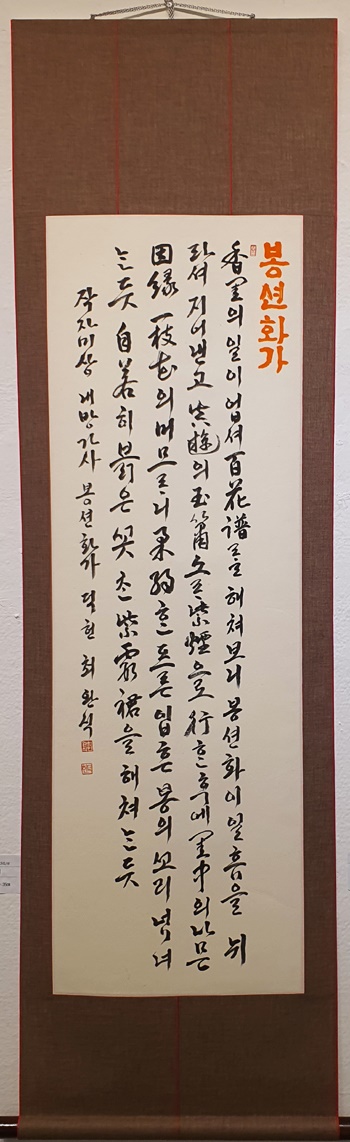 봉션화가
香閨의 일이 업셔 百花譜를 헤쳐보니 봉션화 이 일흠을 뉘
라셔 지어낸고 眞遊의 玉簫소르 紫煙으로 行한 후에 閨中의 나믄
因緣 一枝花의 머므르니 柔弱한 프른 입흔 봉의 꼬리 넘노
는듯 自若히 붉은 꼿츤 紫霞裙을 헤쳐는듯
작자미상 내방가사 봉션화가 덕헌 최완식